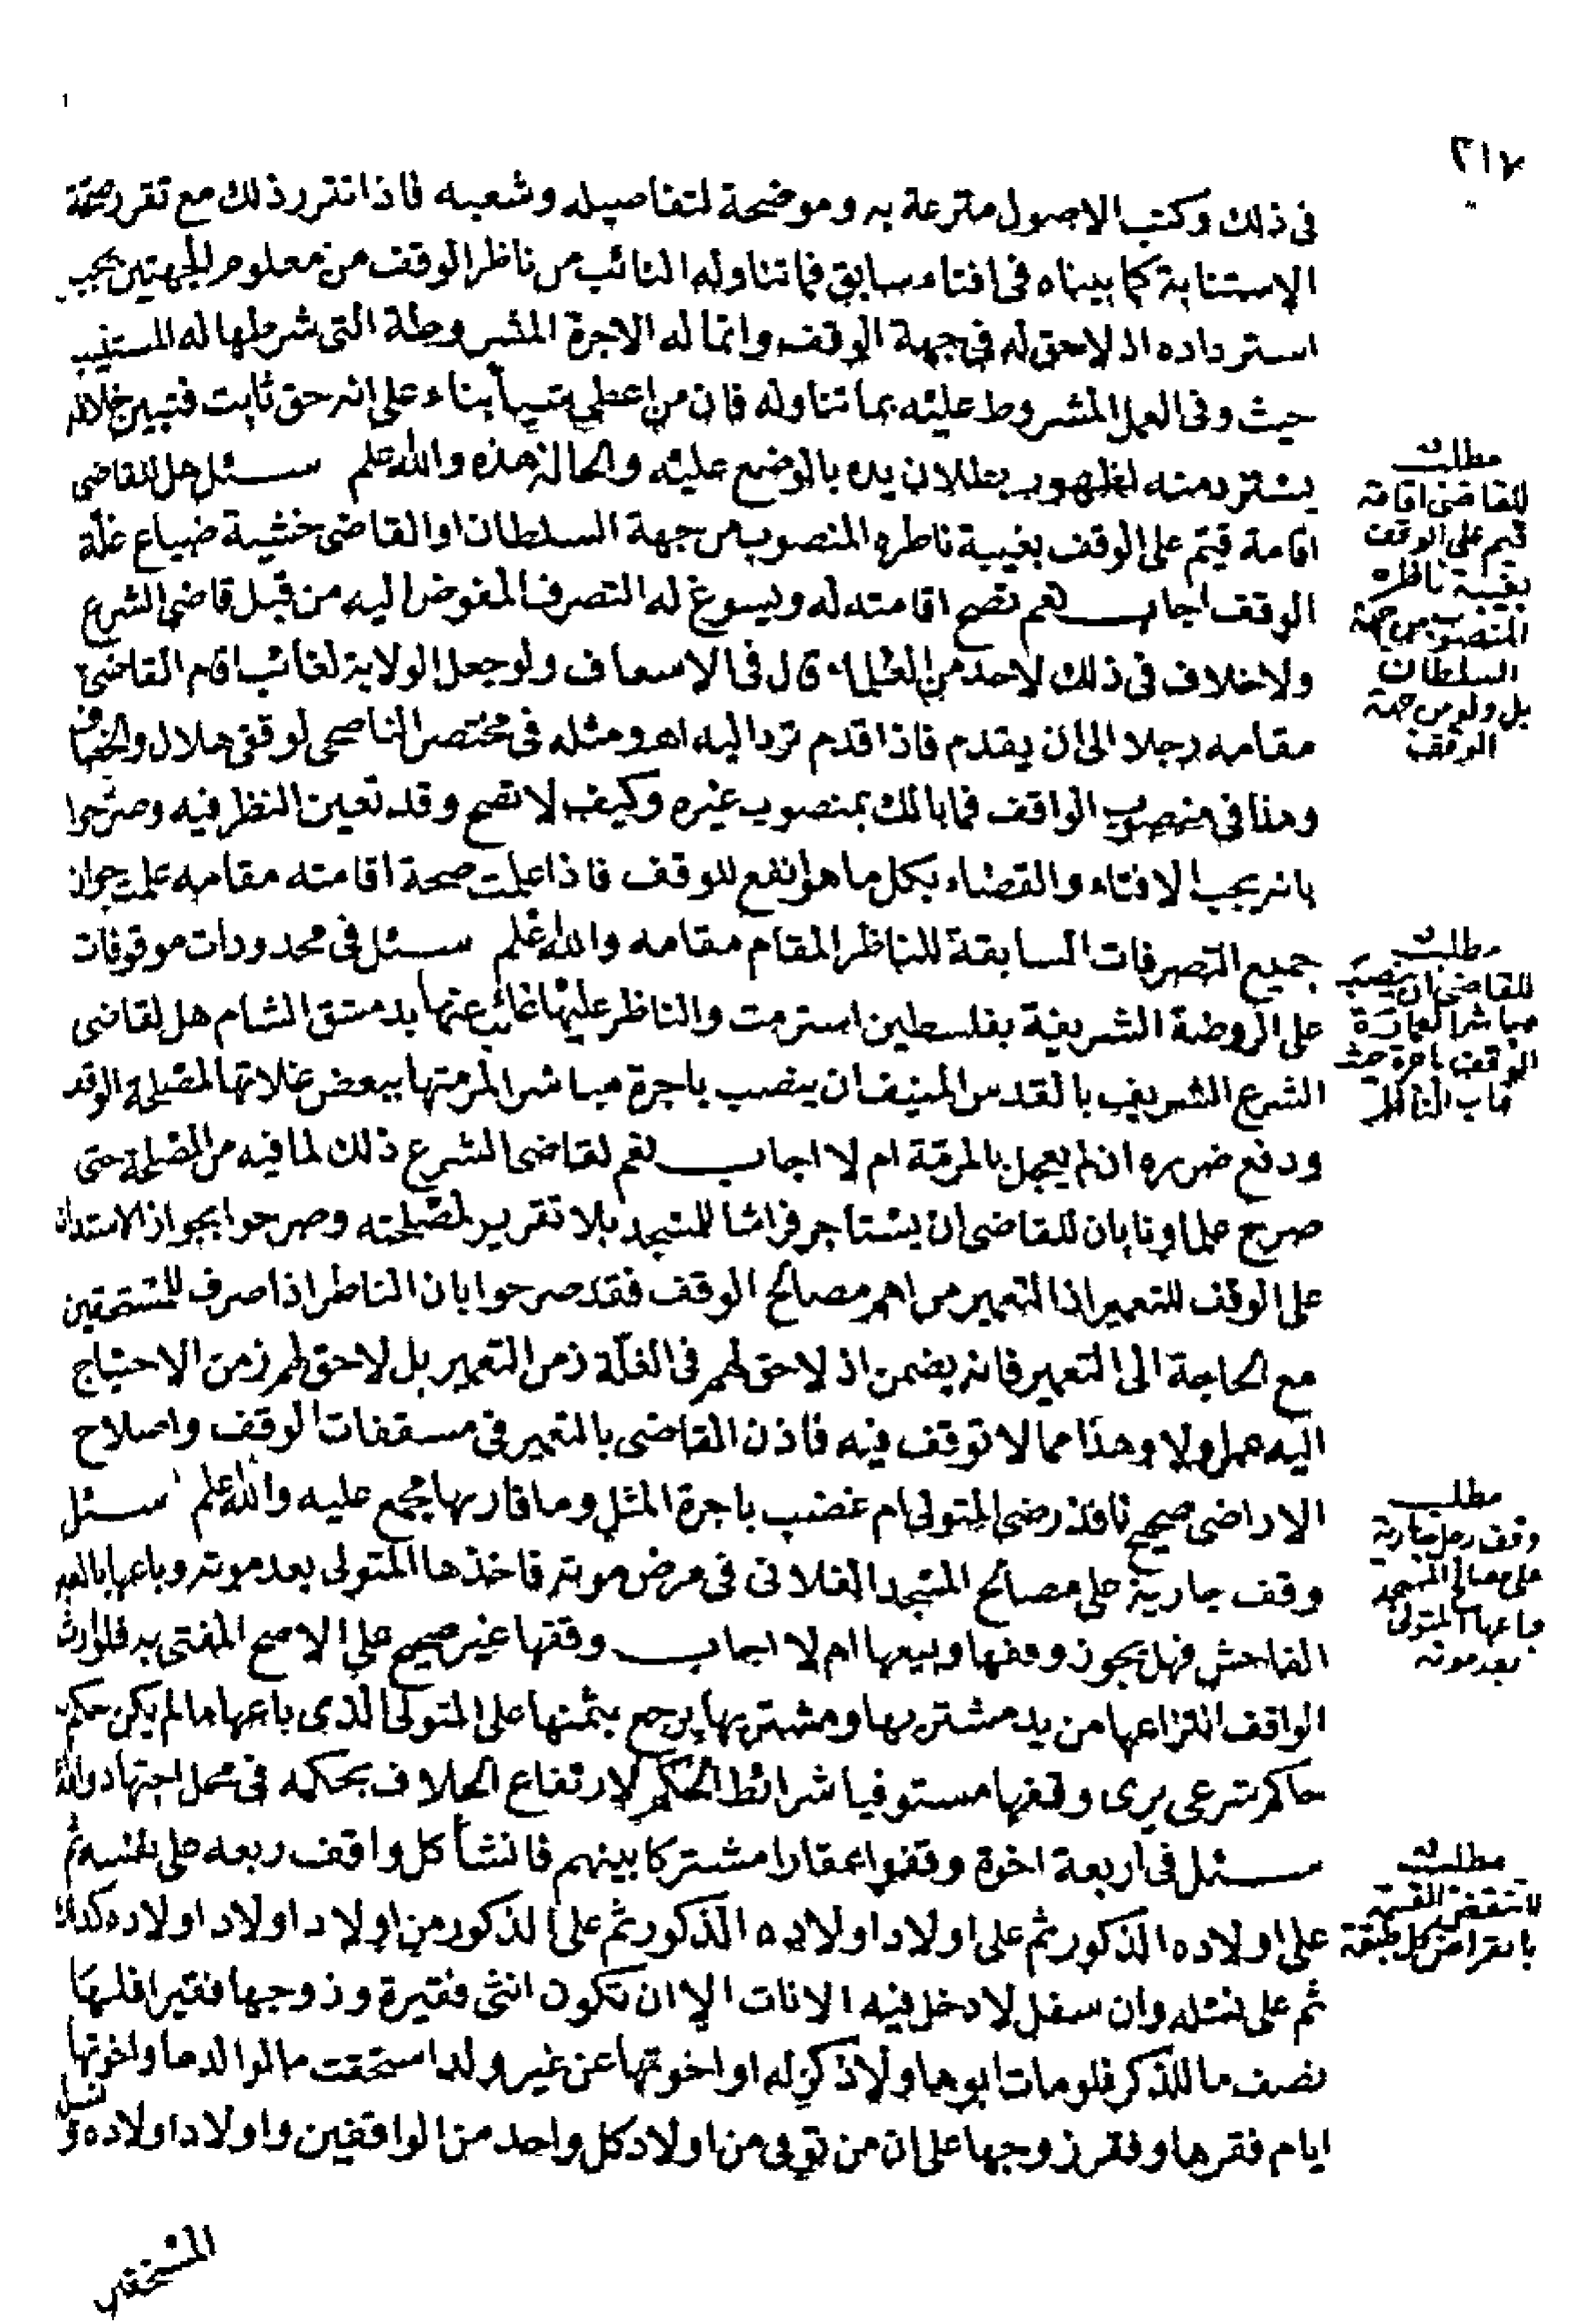 ٢١٧
فى ذلك وكتب الاصول مترعة به وموضحة لتفاصيله وشعبه فاذا تقرر ذلك مع تقرر صحة
الاستنابة كما بيناه فى افتاء سابق فما تناوله النائب من ناظر الوقف من معلوم الجهتين يجب
استرداده اذ لاحق له فى جهة الوقف وانما له الاجرة المشروطة التى شرطها له المستنيب
حيث وفى العمل المشروط عليه بما تناوله فان من اعطى شيأ بناء على انه حق ثابت فتبين خلافه
يسترد منه لظهور بطلان يده بالوضع عليه والحالة هذه والله اعلم سئل هل للقاضى
اقامة قيم على الوقف بغيبة ناظره المنصوب من جهة السلطان او القاضى خشية ضياع غلة
الوقف اجاب نعم تصح اقامته له ويسوغ له التصرف المفوض اليه من قبل قاضى الشرع
ولا خلاف فى ذلك لاحد من العلماء قال فى الاسعاف ولو جعل الولاية لغائب اقام القاضى
مقامه رجلا الى ان يقدم فاذا قدم ترد اليه اهـ ومثله فى مختصر الناصحى لوقفى هلال والخصاف
وهذا فى منصوب الواقف فما بالك بمنصوب غيره وكيف لا تصح وقد تعين النظر فيه وصرحوا
بانه يجب الافتاء والقضاء بكل ما هو انفع للوقف فاذا علمت صحة اقامته مقامه علمت جواز
جميع التصرفات السابقة للناظر المقام مقامه والله اعلم سئل فى محدودات موقوفات
على الروضة الشريفة بفلسطين استرمت والناظر عليها غائب عنها بدمشق الشام هل لقاضى
الشرع الشريف بالقدس المنيف ان ينصب باجرة مباشرا لمرمتها ببعض غلاتها لمصلحة الوقف
ودفع ضرره ان لم يعجل بالمرمة ام لا اجاب نعم لقاضى الشرع ذلك لما فيه من المصلحة حتى
صرح علماونا بان للقاضى ان يستاجر فراشا للمسجد بلا تقرير لمصلحته وصرحوا بجواز الاستدانة
على الوقف للتعمير اذ التعمير من اهم مصالح الوقف فقد صرحوا بان الناظر اذا صرف للمستحقين
مع الحاجة الى التعمير فانه يضمن اذ لاحق لهم فى الغلة زمن التعمير بل لاحق لهم زمن الاحتياج
اليه عمر اولا وهذا مما لا توقف فيه فاذن القاضى بالتعمير فى مسقفات الوقف واصلاح
الاراضى صحيح نافذ رضى المتولى ام غضب باجرة المثل وما قاربها مجمع عليه والله اعلم سئل
وقف جارية على مصالح المسجد الفلانى فى مرض موته فاخذها المتولى بعد موته وباعها بالغبن
الفاحش فهل يجوز وقفها وبيعها ام لا اجاب وقفها غير صحيح على الاصح المفتى به فلوارث
الواقف انتزاعها من يد مشتريها ومشتريها يرجع بثمنها على المتولى الذى باعها ما لم يكن حكم
حاكم شرعى يرى وقفها مستوفيا شرائط الحكم لارتفاع الخلاف بحكمه فى محل اجتهاد والله
سئل فى اربعة اخوة وقفوا عقارا مشتركا بينهم فانشأ كل واقف ربعه على نفسه ثم
على اولاده الذكور ثم على اولاد اولاده الذكور ثم على الذكور من اولاد اولاد اولاده كذلك
ثم على نسله وان سفل لا دخل فيه الاناث الا ان تكون انثى فقيرة وزوجها فقير افلها
نصف ما للذكر فلو مات ابوها ولا ذكر له او اخوتها عن غير ولد استحقت ما لوالدها واخوتها
ايام فقرها وفقر زوجها على ان من توفى من اولاد كل واحد من الواقفين واولاد اولاده ونسل
المستحقين
مطلب
للقاضى اقامة
قيم على الوقف
بغيبة ناظره
المنصوب من جهة
السلطان
بل ولو من جهة
الواقف
مطلب
للقاضى ان ينصب
مباشرا لعمارة
الوقف باجرة حيث
غاب الناظر
مطلب
وقف رجل جارية
على مصالح المسجد
باعها المتولى
بعد موته
مطلب
لا تنتقض القسمة
بانقراض كل طبقة